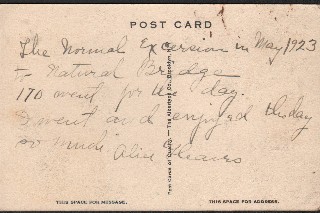 POST CARD
The Normal Excursion in May 1923
to Natural Bridge
170 went for the day.
I went and enjoyed the day
so much. Alice
Post Cards of Quality. — The Albertype Co., Brooklyn, N.Y.
THIS SPACE FOR MESSAGE.
THIS SPACE FOR ADDRESS.